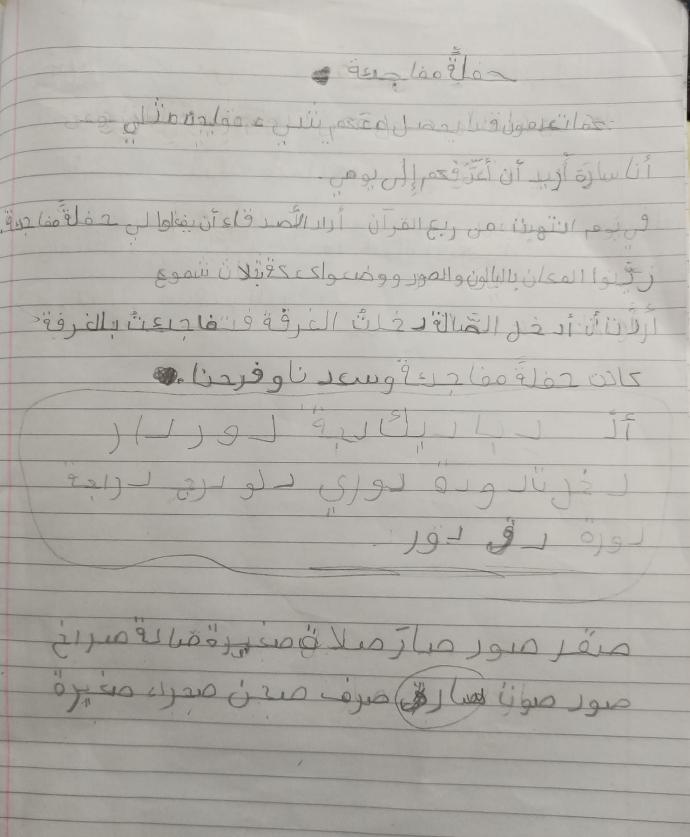 حفلةً مفاجئة
كما تعلمون قد يحصل معكم شيء مفاجئ مثلي
أنا سارة أريد أن أعَرِّفكم إلى يومي.
في يوم انتهيت من ربع القرآن أراد الأصدقاء أن يفعلوا لي حفلةً مفاجئة.
زيَّنوا المكان بالبالون والصور ووضعوا كعكة بثلاث شموع
أردْتُ أن أدخل الصَّالة دخلتُ الغرفة فتفاجئتُ بالغرفة
كانت حفلةً مفاجئة وسعدنا وفرحنا.
دار
دودة دوري دلو درج دراجة
دورة دور
صقر صور صبار صلاة صغيرة صالة صراخ
صور صوان صرف صحن صحراء صغيرة